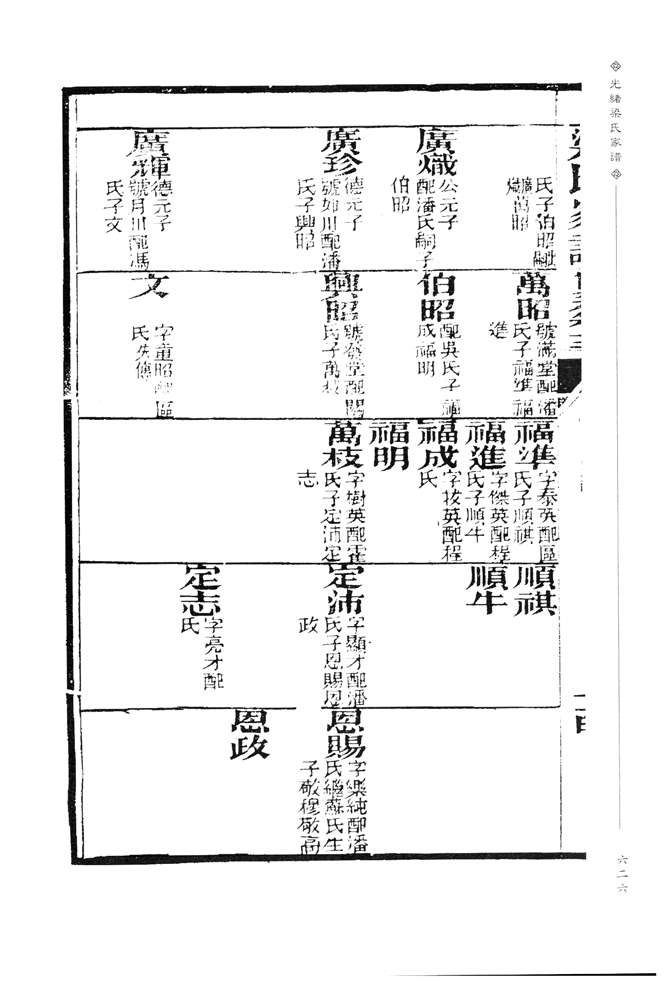 光緒梁氏家譜
氏子伯昭嗣
萬昭
萬昭
號滿堂配潘
氏子福準福
進
福準
字泰英配區
氏子順祺
順祺
福進
字傑英配程
氏子順牛
順牛
廣熾
公元子
配潘氏嗣子
伯昭
伯昭
配吳氏子福
成福明
福成
字拔英配程
氏
福明
廣珍
德元子
號如川配潘
氏子興昭
興昭
號發堂配關
氏子萬枝
萬枝
字樹英配霍
氏子定沛定
志
定沛
字顯才配潘
氏子恩賜恩
政
恩賜
字樂純配潘
氏繼蘇氏生
子敬穆敬高
恩政
定志
字亮才配
氏
廣輝
德元子
號月川配馮
氏子文
文
字童昭配區
氏失傳
六二六